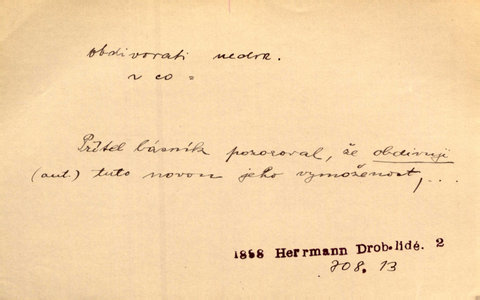 obdivovati nedok.
v co =
Přítel básník pozoroval, že obdivuji
(aut.) tuto novou jeho vymoženost, ...
1898 Herrmann Drob.lidé. 2
208. 13